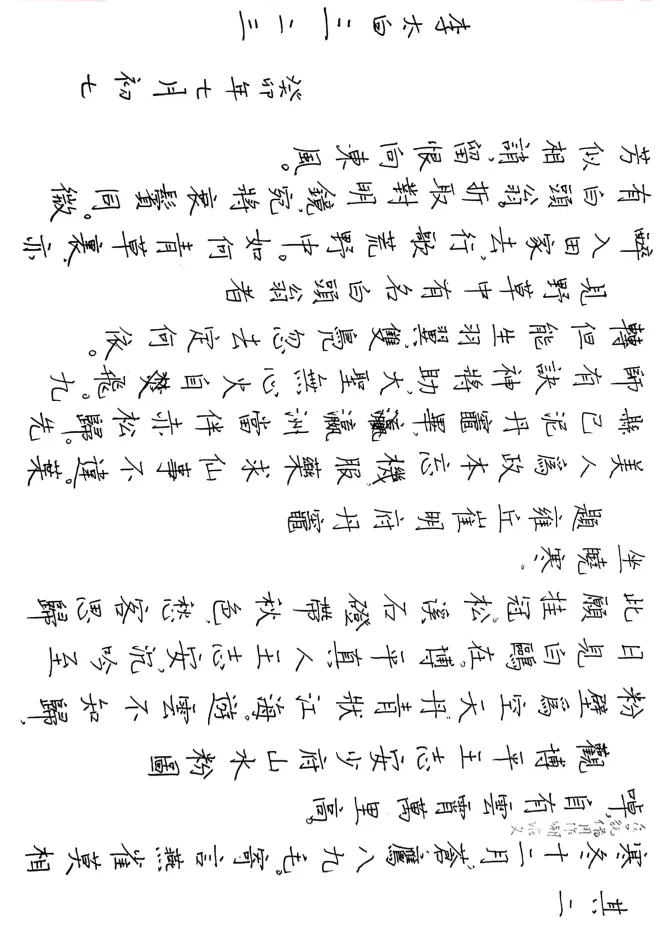 其二
寒冬十二月，蒼鷹八九毛。寄言燕雀莫相
啅，自有雲霄萬里高。
觀博平王志安少府山水粉圖
粉壁爲空天，丹青狀江海。遊雲不知歸，
日見白鷗在。博平真人王志安，沉吟至
此願挂冠。松溪石磴帶秋色，愁客思歸
坐曉寒。
題雍丘崔明府丹竈
美人爲政本忘機，服藥求仙事不違。葉
縣已泥丹竈畢，瀛洲當伴赤松歸。先
師有訣神將助，大聖無心火自飛。九
轉但能生羽翼，雙鳧忽去定何依。
見野草中有名白頭翁者
醉入田家去，行歌荒野中。如何青草裏，亦
有白頭翁。折取對明鏡，宛將衰鬢同。微
芳似相誚，留恨向東風。
癸卯年七月初七
李太白三二三